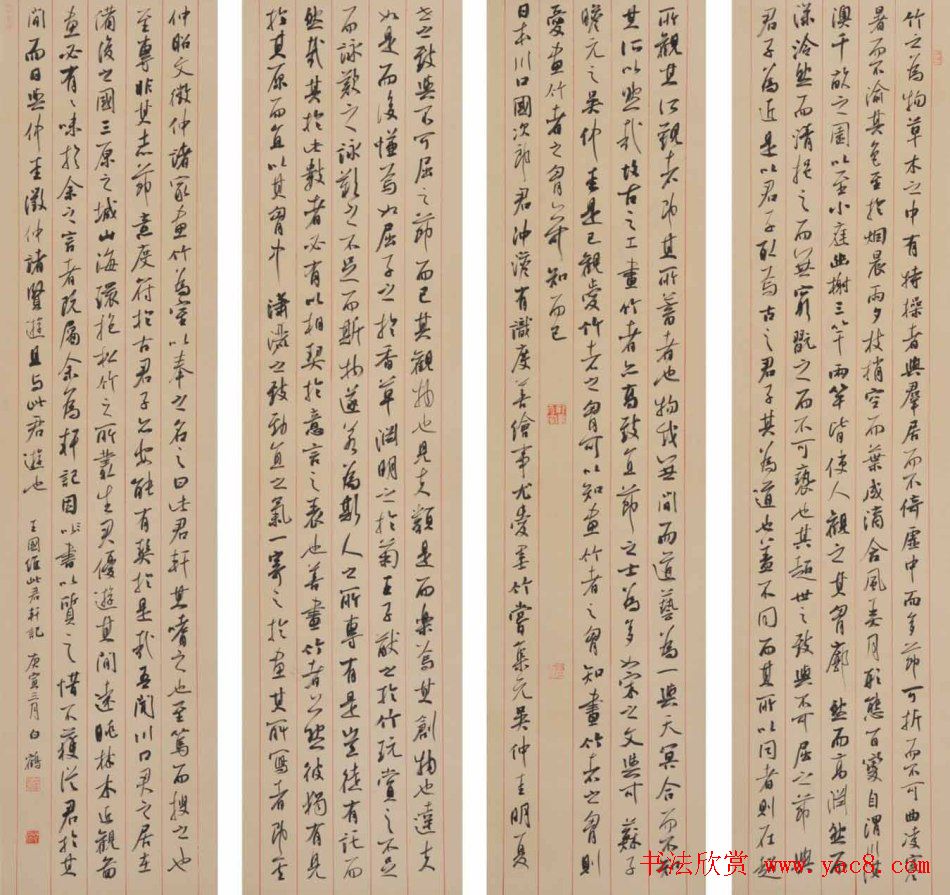 竹之為物草木之中有特操者與羣居而不倚虛中而多節可折而不可曲凌寒
暑而不渝其色至於烟晨雨夕枝梢空而葉成滴含風弄月形態百變自渭川淇
澳千畝之園以至小庭幽榭三竿兩竿皆使人觀之其胷廓然而高淵然而
深泠然而清挹之而無窮翫之而不可褻也其超世之致與不可屈之節與
君子為近是以君子取焉古之君子其為道也蓋不同而其所以同者則在超
世之致與不可屈之節而已其觀物也見夫類是而樂焉其創物也達夫
如是而後慊焉如屈子之於香草淵明之於菊王子猷之於竹玩賞之不足
而詠歎之詠歎之不足而斯物遂若為斯人之所專有是豈徒有託而
然哉其於此數者必有以相契於意言之表也善畫竹者亦然彼獨有見
於其原而直以其胷中瀟灑之致勁直之氣一寄之於畫其所寫者即其
所觀其所觀者即其所蓄者也物我無間而道藝為一與天冥合而不知
其所以然哉故古之工畫竹者亦高致直節之士為多如宋之文與可蘇子
瞻元之吳仲圭是已觀愛竹者之胷可以知畫竹者之胷知畫竹者之胷則
愛畫竹者之胷亦可知而已
日本川口國次郎君沖澹有識度善繪事尤愛墨竹嘗集元吳仲圭明夏
仲昭文徵仲諸家畫竹為室以奉之名之曰此君軒其嗜之也至篤而搜之也
至專非其志節意度符於古君子亦安能有契於是哉吾聞川口君之居在
備後之國三原之城山海環抱松竹之所叢生君優遊其間遠眺林木近觀畫
畫必有味於余之言者既屬余為軒記因以書以質之惜不獲從君於其
間而日與仲圭徵仲諸賢遊且與此君遊也 王國維此君軒記 庚寅三月 白鶴
书法欣赏 www.yac8.com